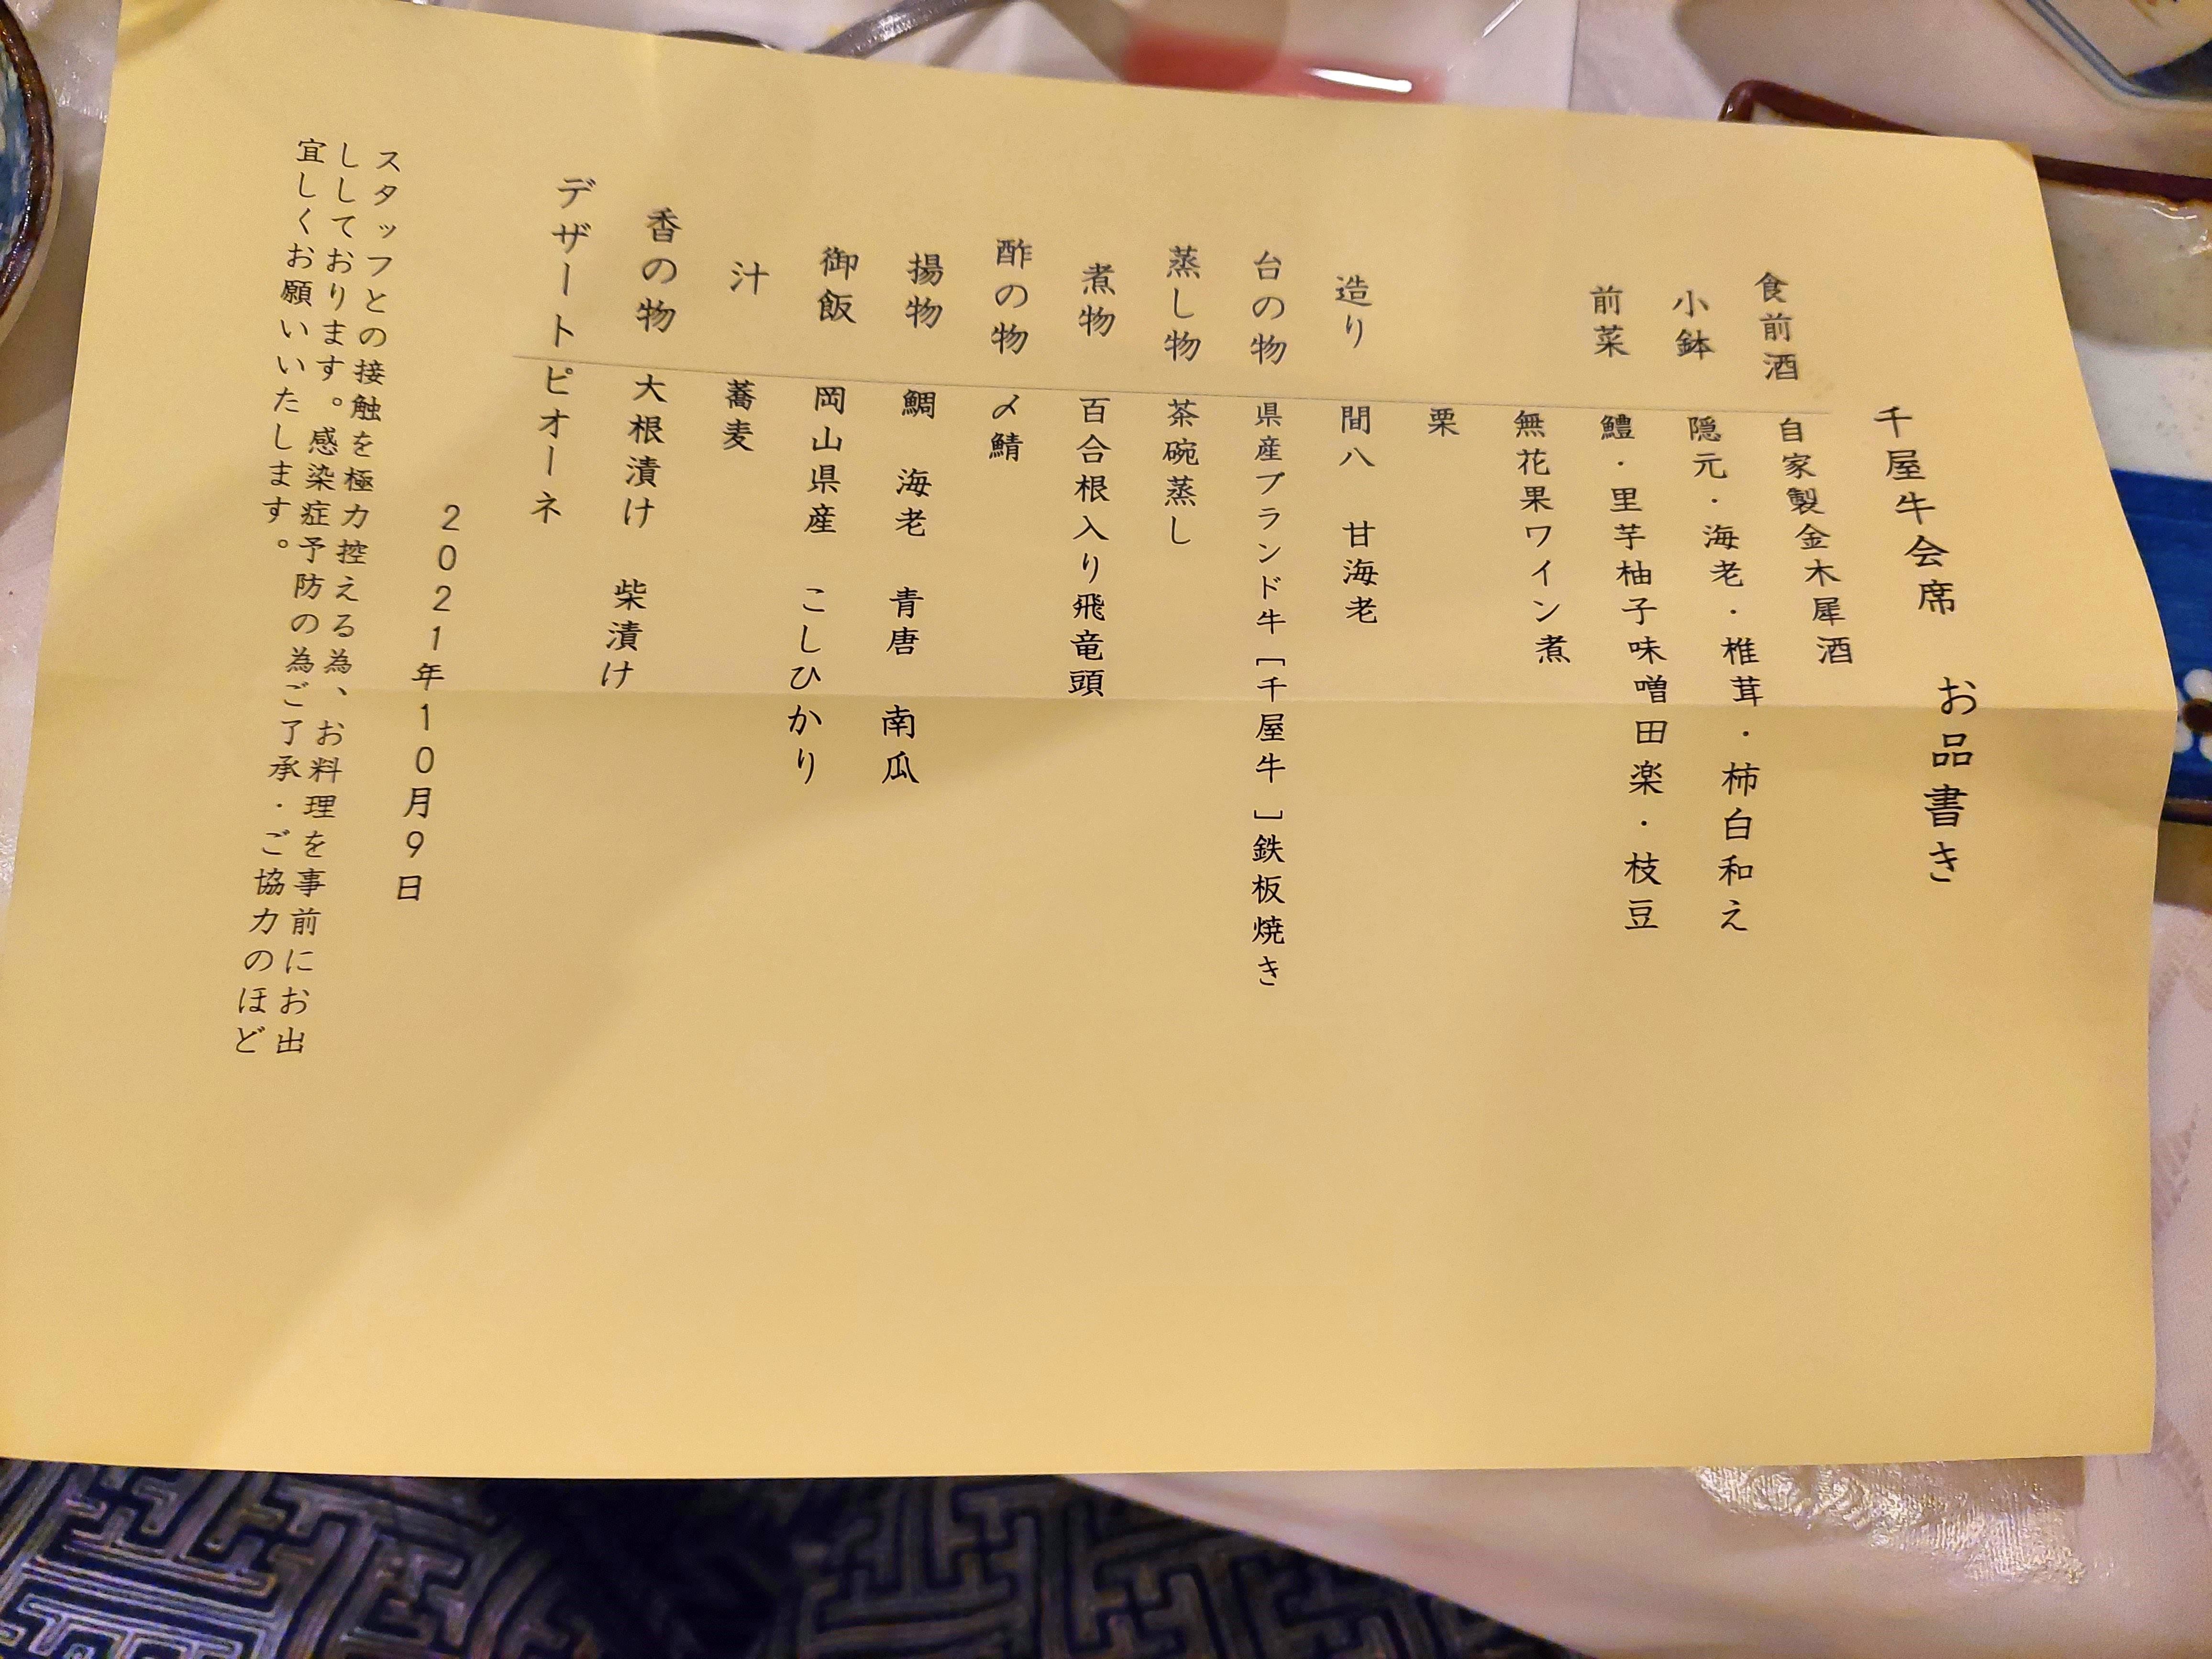 千屋牛会席　お品書き
食前酒　自家製金木犀酒
小鉢　隠元・海老・椎茸・柿白和え
前菜　鱧・里芋柚子味噌田楽・枝豆
無花果ワイン煮
栗
造り　間八　甘海老
台の物　県産ブランド牛［千屋牛］鉄板焼き
蒸し物　茶碗蒸し
煮物　百合根入り飛竜頭
酢の物　〆鯖
揚物　鯛　海老　青唐　南瓜
御飯　岡山県産　こしひかり
汁　蕎麦
香の物　大根漬け　柴漬け
デザート　ピオーネ
2021年10月9日
スタッフとの接触を極力控える為、お料理を事前にお出
ししております。感染症予防の為ご了承・ご協力のほど
宜しくお願いいたします。